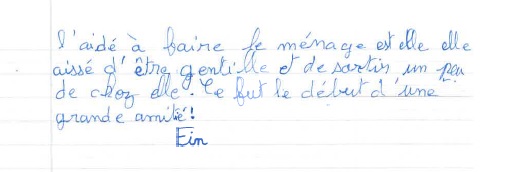 l'aidé à faire le ménage est elle elle
aissé d'être gentille et de sortir un peu
de chez elle. Ce fut le début d'une
grande amitié!
Fin